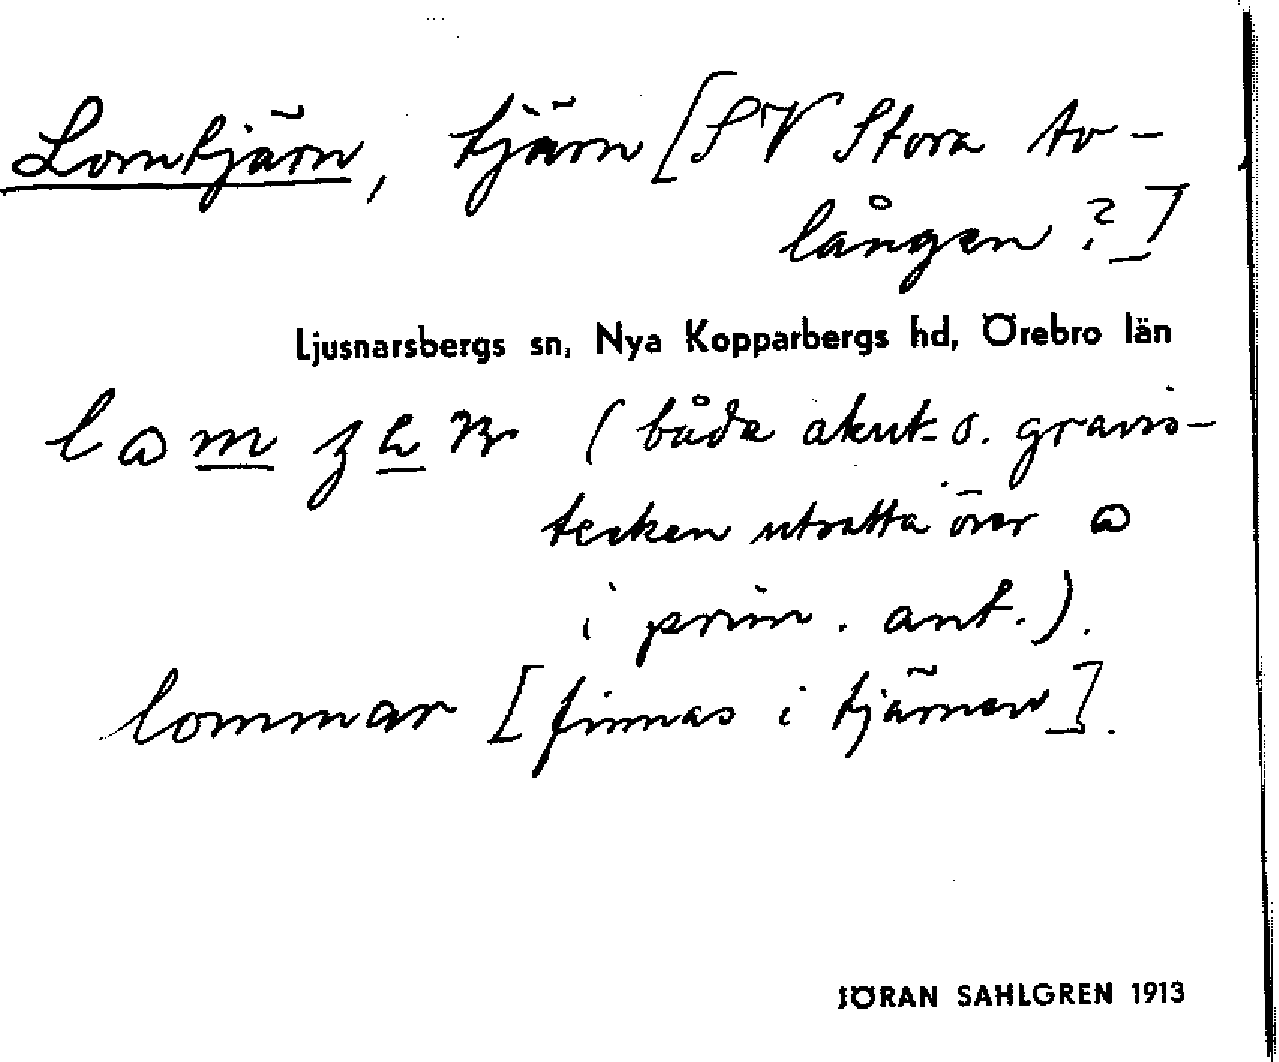 Lomtjärn, tjärn [SV Stora to-
lången?]
Ljusnarsbergs sn, Nya Kopparbergs hd, Örebro län
(både akut- o. gravis-
tecken utsatta över
i prim. ant.).
lommar [finnas i tjärnen].
JÖRAN SAHLGREN 1913